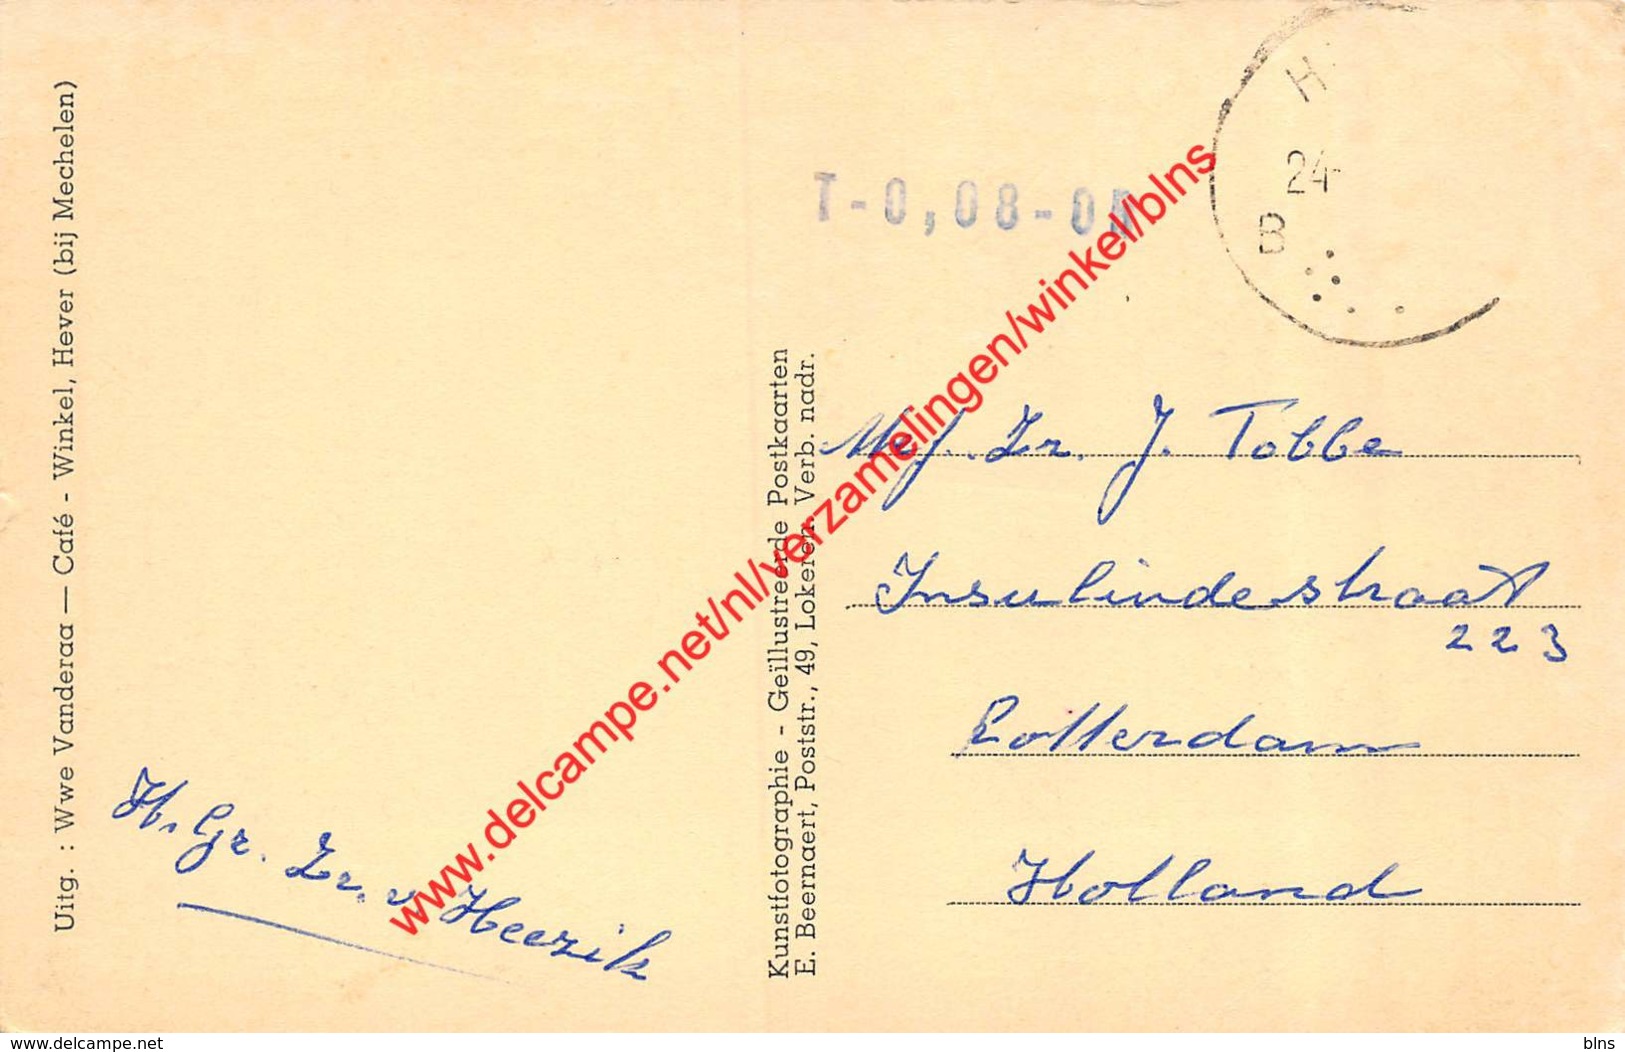 Uitg. : Wwe Vanderaa — Café - Winkel, Hever (bij Mechelen)
H. Gr. Zr. v. Heezik
Kunstfotographie - Geïllustreerde Postkaarten
E. Beernaert, Poststr., 49, Lokeren. Verb. nadr.
T-0,08-
H
24-
B
Mej. Zr. J. Tobbe
Insulindestraat
223
Rotterdam
Holland
www.delcampe.net/nl/verzamelingen/winkel/blns
www.delcampe.net
blns